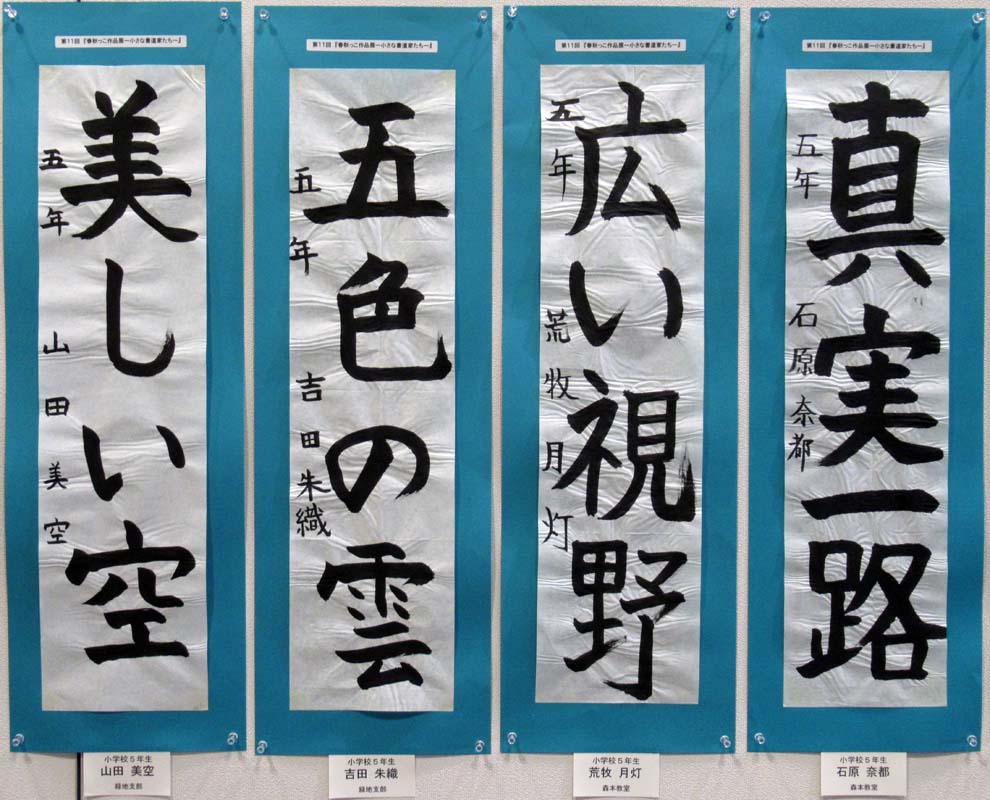 第11回 『春秋っこ作品展ー小さな書道家たちー』
美しい空
五年 山田美空
小学校5年生
山田 美空
緑地支部
第11回 『春秋っこ作品展ー小さな書道家たちー』
五色の雲
五年 吉田朱織
小学校5年生
吉田 朱織
緑地支部
第11回 『春秋っこ作品展ー小さな書道家たちー』
広い視野
五年 荒牧月灯
小学校5年生
荒牧 月灯
森本教室
第11回 『春秋っこ作品展ー小さな書道家たちー』
真実一路
五年 石原奈都
小学校5年生
石原 奈都
森本教室